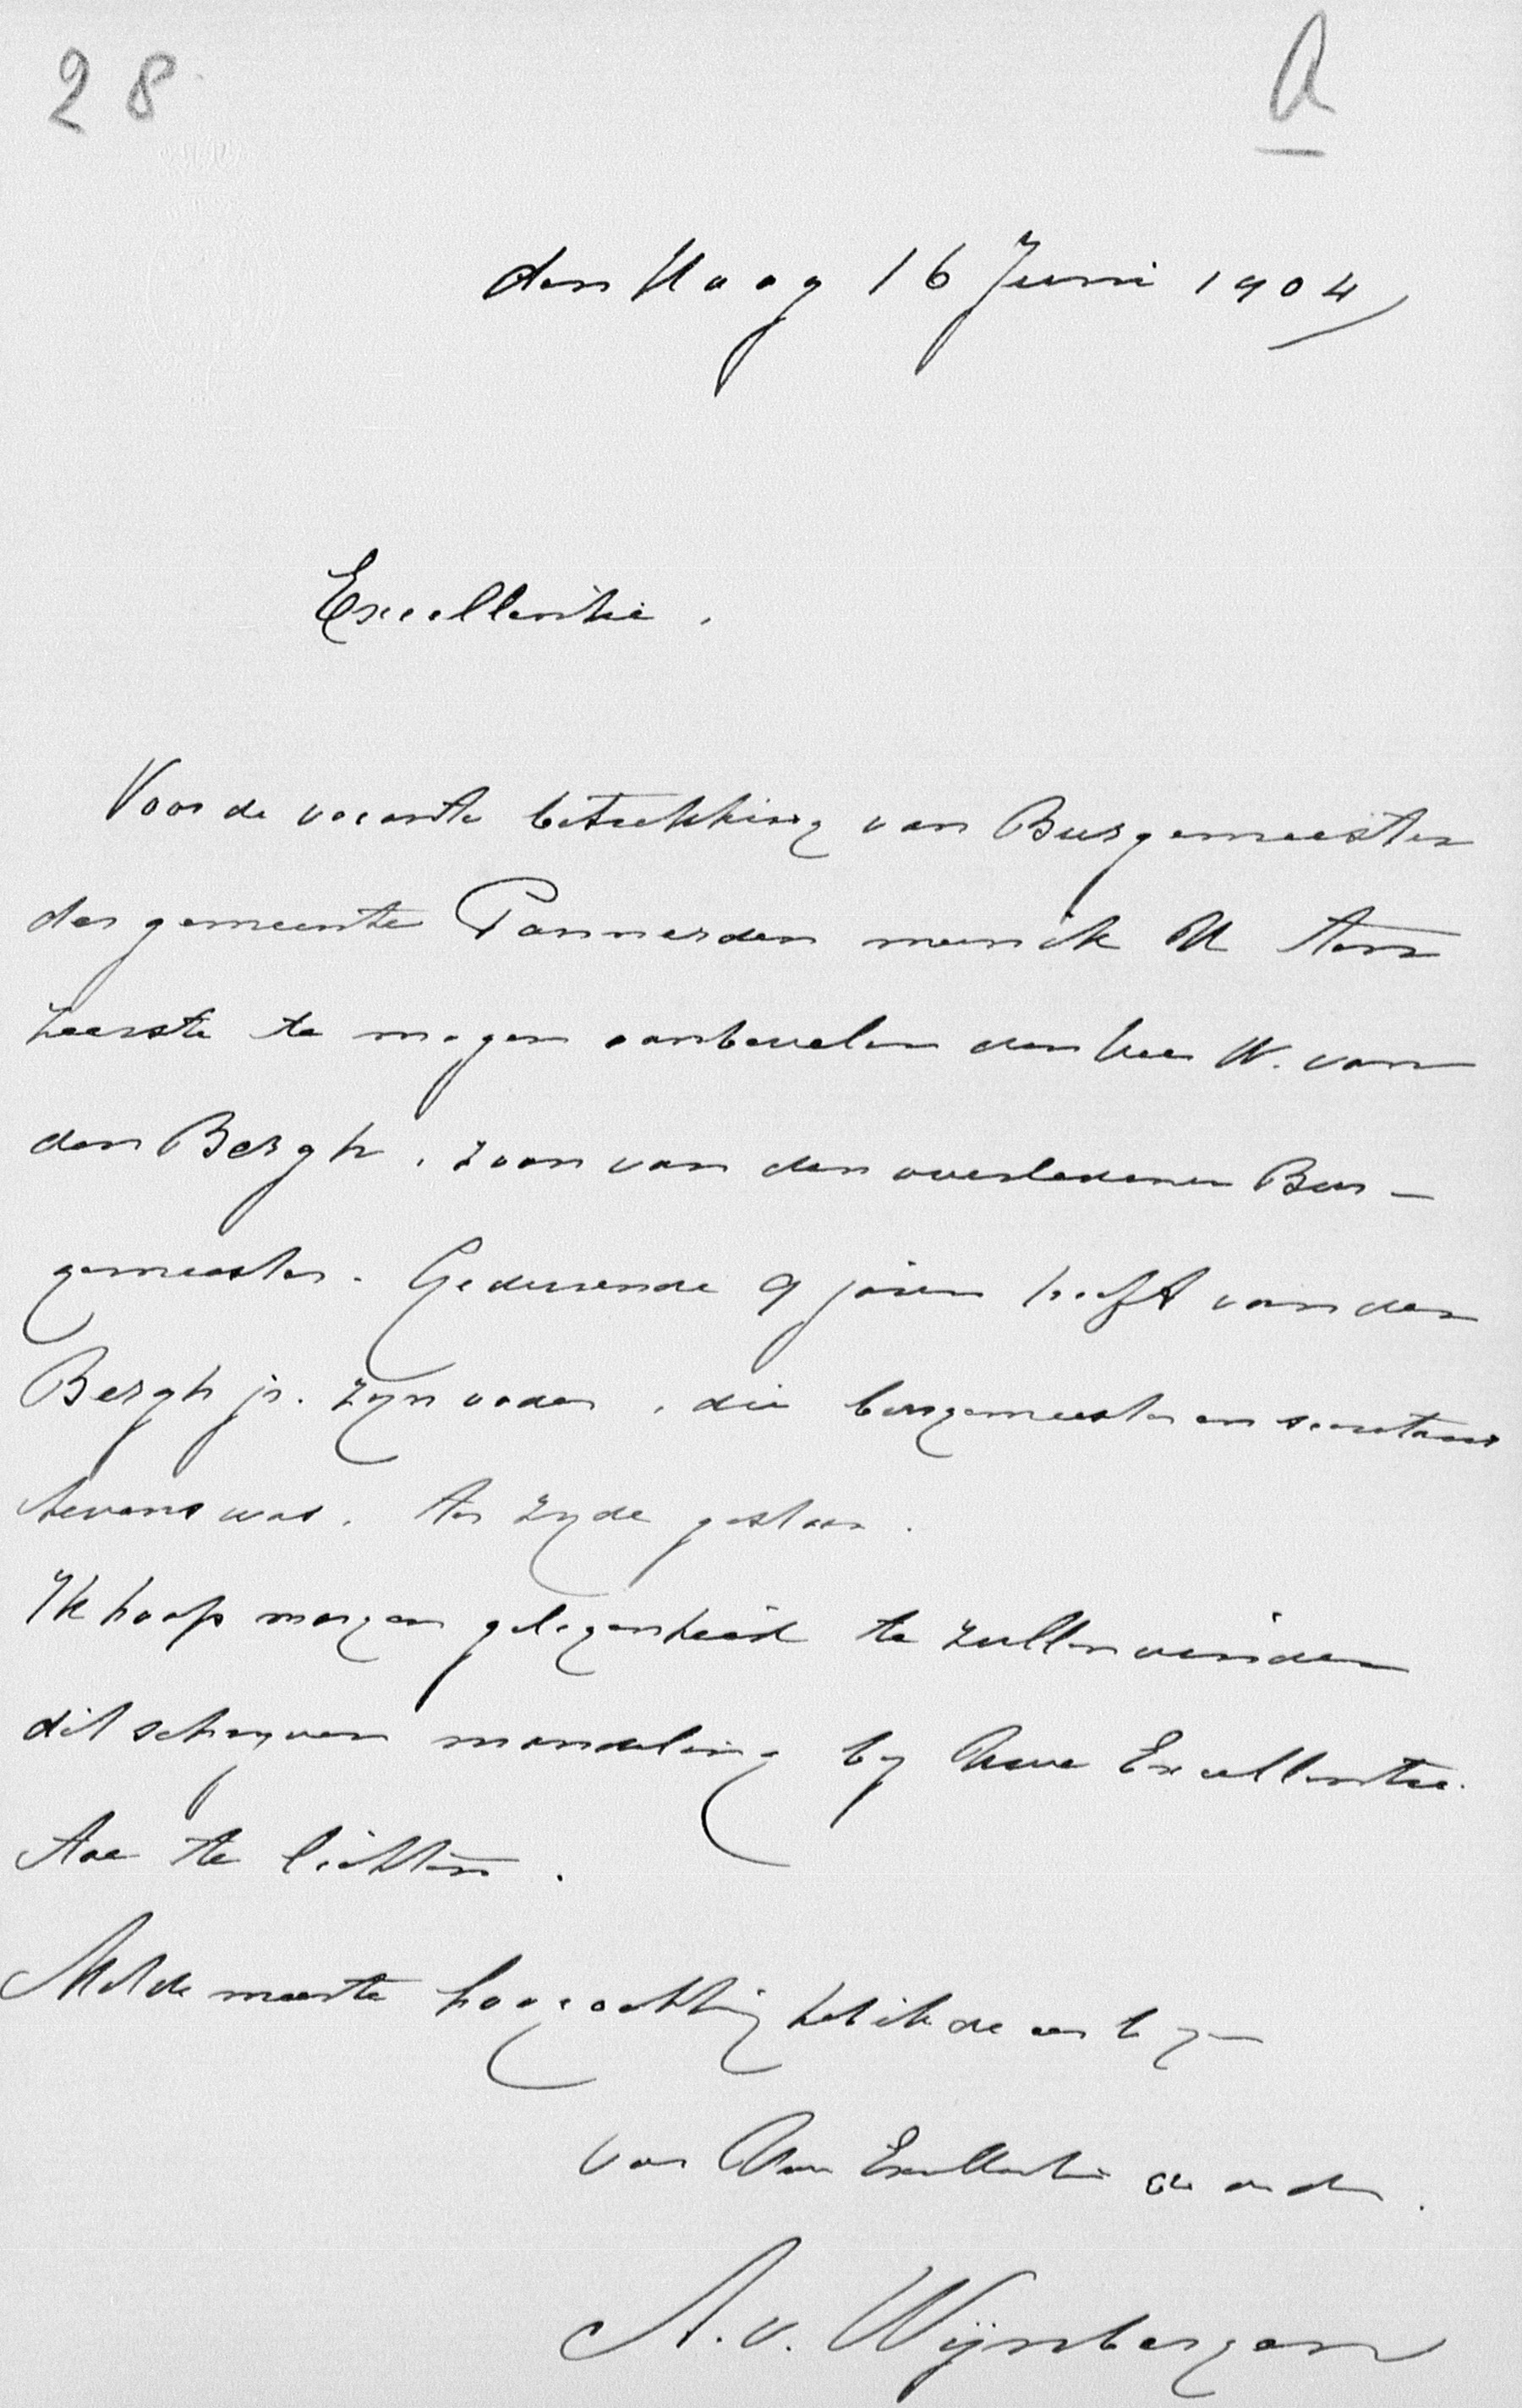 28
A
den Haag 16 Juni 1904
Excellentie.
Voor de vacante betrekking van Burgemeester
der gemeente Pannerden meen ik U ten
zeerste te mogen aanbevelen den heer W. van
den Bergh, zoon van den overledenen Bur-
gemeester. Gedurende 9 jaren heeft van den
Bergh jr. zijn vader, die burgemeester en secretaris
tevens was, ter zijde gestaan.
Ik hoop morgen gelegenheid te zullen vinden
dit schrijven mondeling bij Uwe Excellentie
toe te lichten.
Met de meeste hoogachting heb ik de eer te zijn
van Uwe Excellentie de
A. v. Wijnbergen